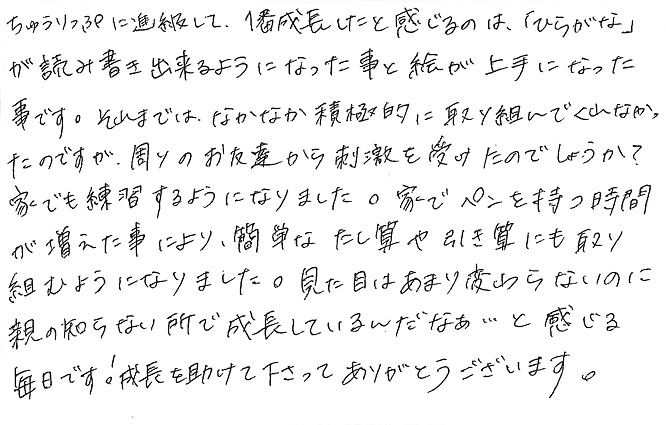 ちゅうりっぷに進級して、1番成長したと感じるのは、「ひらがな」
が読み書き出来るようになった事と絵が上手になった
事です。それまでは、なかなか積極的に取り組んでくれなかっ
たのですが、周りのお友達から刺激を受けたのでしょうか?
家でも練習するようになりました。家でペンを持つ時間
が増えた事により、簡単なたし算や引き算にも取り
組むようになりました。見た目はあまり変わらないのに
親の知らない所で成長しているんだなぁ…と感じる
毎日です!成長を助けて下さってありがとうございます。